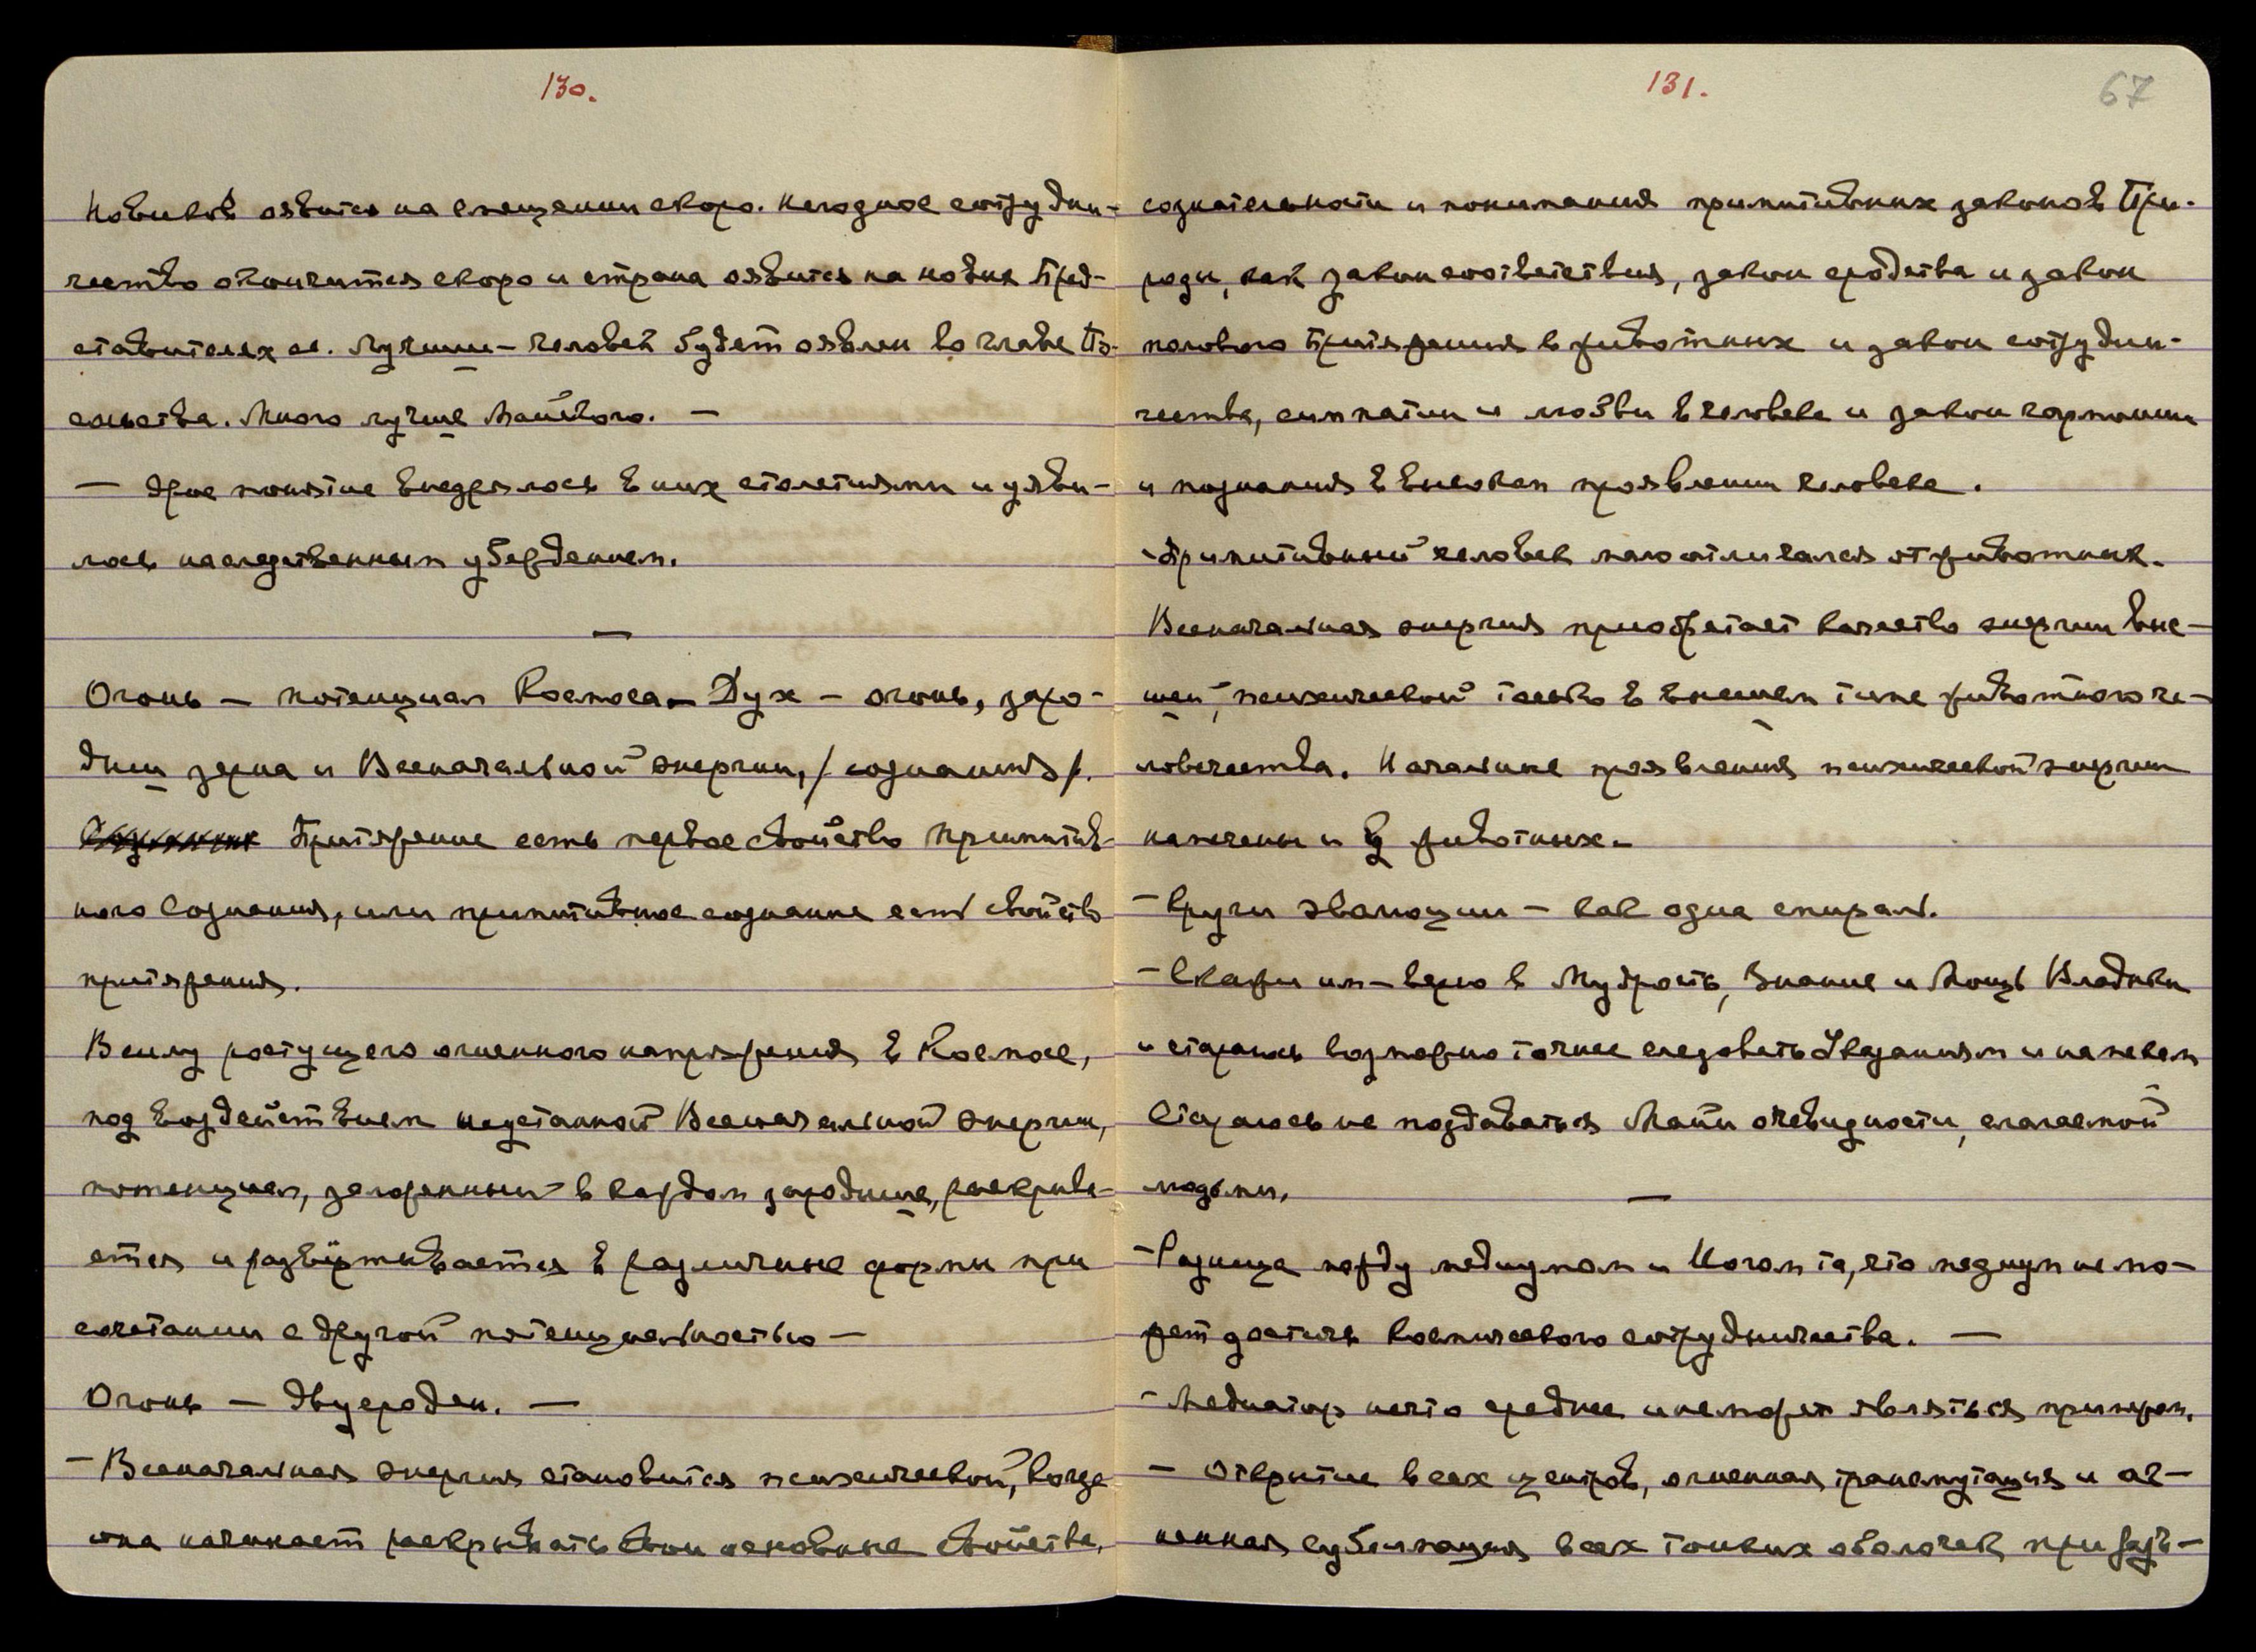 130.
Новиков явится на смещении скоро. Негодное сотрудни-
чество окончится скоро и страна явится на новых Пред-
ставителях ее. Лучший человек будет явлен во главе По-
сольства. Много лучше Майского. —
— Это понятие внедрялось в них столетиями и уяви-
лось наследственным убеждением.
—
Огонь — потенциал Космоса — Дух — огонь, заро-
дыш зерна и Всеначальной энергии, /сознания/.
Притяжение есть первое свойство примитив-
ного сознания, или примитивное сознание есть свойство
притяжения.
В силу растущего огненного напряжения в Космосе,
под воздействием неустанной Всеначальной энергии,
потенциал, заложенный в каждом зародыше, раскрыва-
ется и развёртывается в различные формы при
сочетании с другой потенциальностью —
Огонь — двуероден. —
— Всеначальная энергия становится психической, когда
она начинает раскрывать свои основные свойства,
131.
67
сознательности и понимания примитивных законов При-
роды, как закон соответствия, закон сродства и закон
полового притяжения в животных и закон сотрудни-
чества, симпатии и любви в человеке и закон гармонии
и познания в высоком проявлении человека.
- Примитивный человек мало отличался от животных.
Всеначальная энергия приобретает качество энергии выс-
шей, психической только в высшем типе животного че-
ловечества. Начальные проявления психической энергии
намечены и у животных.
- Круги эволюции — как одна спираль.
- Скажи им — верю в Мудрость, Знание и Мощь Владыки
и стараюсь возможно точнее следовать Указаниям и намекам
Стараюсь не поддаваться Майи очевидности, слагаемой
людьми.
—
- Разница между медиумом и Йогом та, что медиум не мо-
жет достичь космического сотрудничества. —
- Медиатор нечто среднее и не может являться примером.
- Открытие всех центров, огненная трансмутация и ог-
ненная сублимация всех тонких оболочек при разъ-